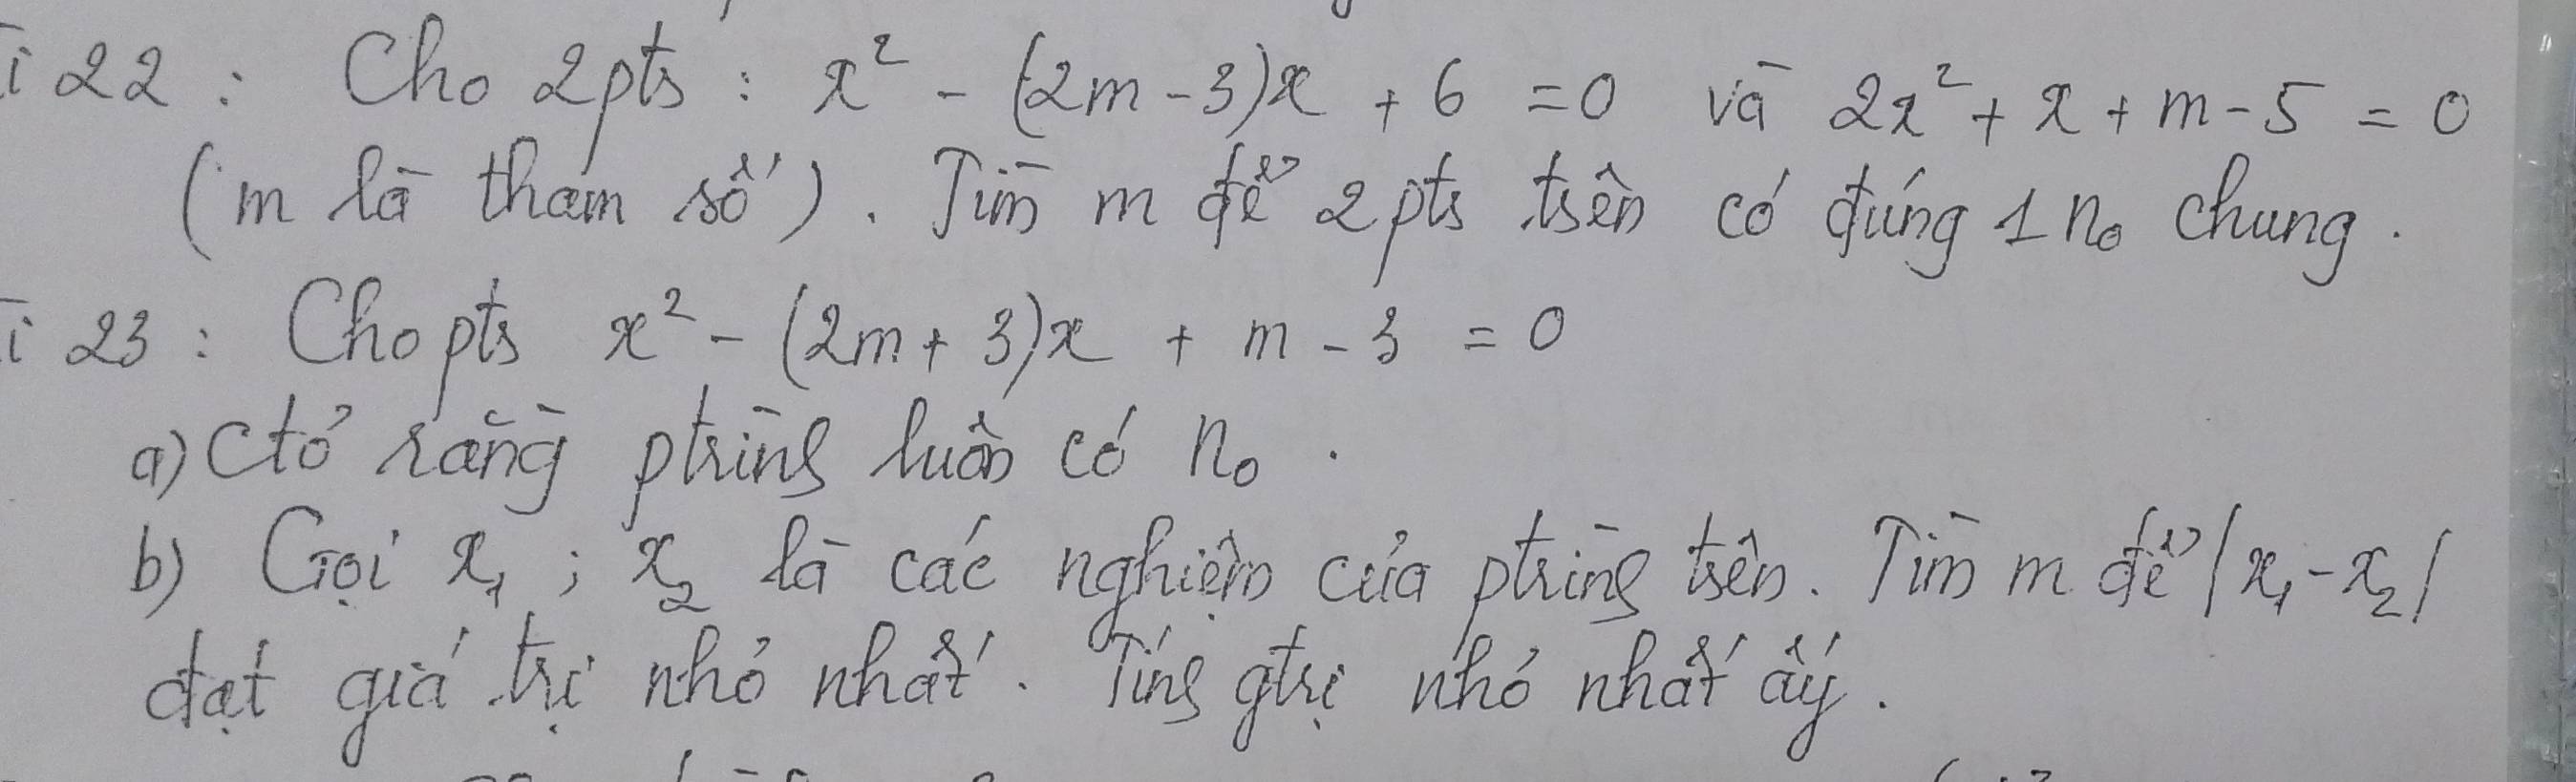 i 22 : Cho 2pts : x² - (2m - 3)x + 6 = 0 và 2x² + x + m - 5 = 0
(m là tham số). Tìm m để 2pts trên có đúng 1 n₀ chung.
i 23 : Cho pts x² - (2m + 3)x + m - 3 = 0
a) Ctỏ rằng ptrìng luôn có n₀.
b) Gọi x₁ ; x₂ là các nghiệm của ptrìng trên. Tìm m để |x₁ - x₂|
đạt giá trị nhỏ nhất. Tíng gtrị nhỏ nhất ấy.